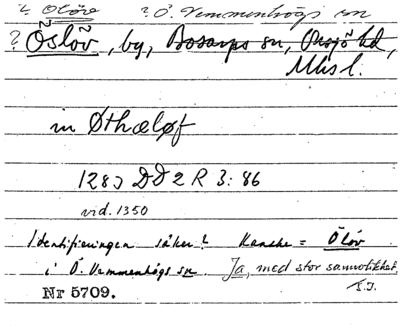 ? Ölöv ? Ö. Vemmenhögs sn
? Öslöv, by, Bosarps sn, Onsjö hd,
Mhs l.
in Øthæløf
1283 DD 2 R 3: 86
vid. 1350
Identifieringen säker? Kanske = Ölöv
i Ö. Vemmenhögs sn. Ja, med stor sannolikhet.
Nr 5709.